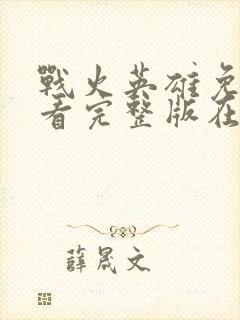 戰火英雄免
看完整版在
薛晟文